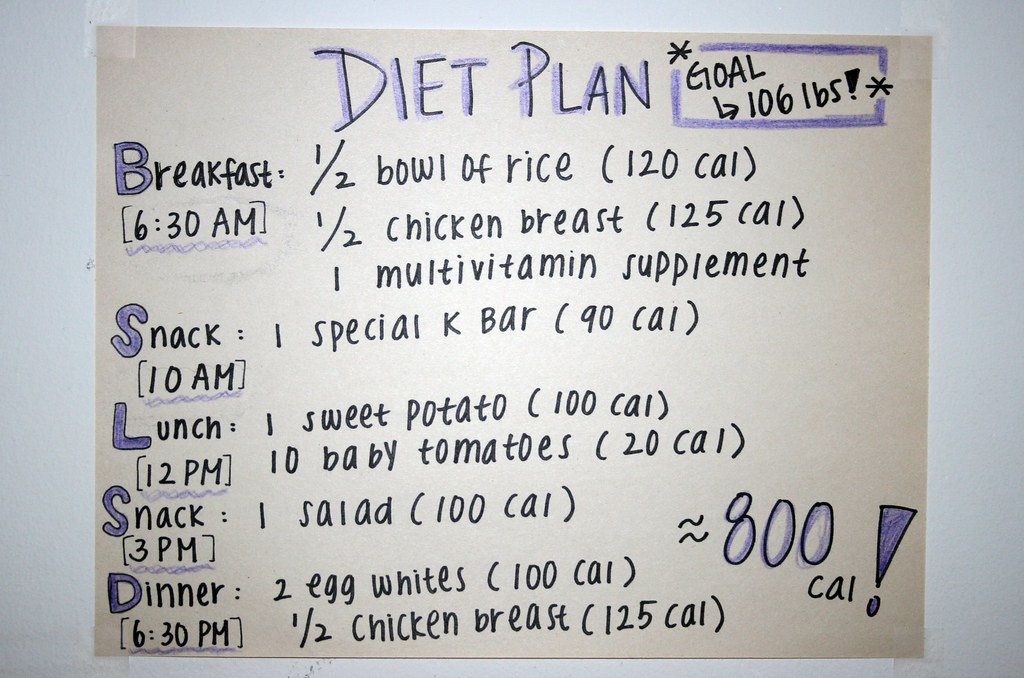 DIET PLAN
*GOAL
↳ 106 lbs!*
Breakfast: 1/2 bowl of rice (120 cal)
[6:30 AM] 1/2 chicken breast (125 cal)
1 multivitamin supplement
Snack: 1 special K Bar (90 cal)
[10 AM]
Lunch: 1 sweet potato (100 cal)
[12 PM] 10 baby tomatoes (20 cal)
Snack: 1 salad (100 cal)
[3 PM]
≈ 800
cal!
Dinner: 2 egg whites (100 cal)
[6:30 PM] 1/2 chicken breast (125 cal)